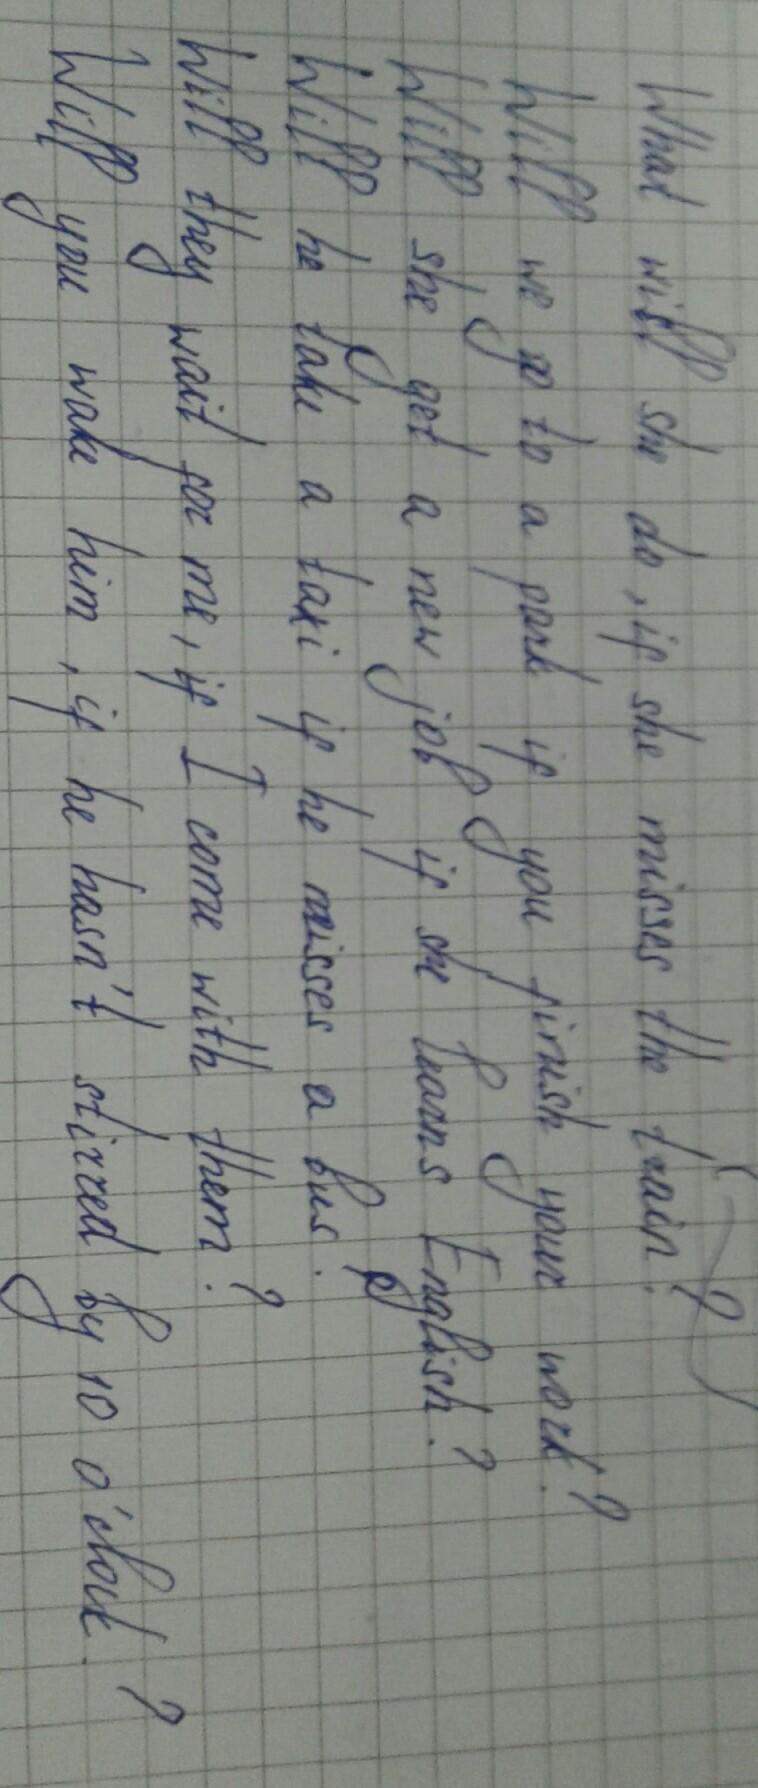 What will she do, if she misses the train?
Will we go to a park if you finish your work?
Will she get a new job if she learns English?
Will he take a taxi if he misses a bus?
Will they wait for me, if I come with them?
Will you wake him, if he hasn't stirred by 10 o'clock?